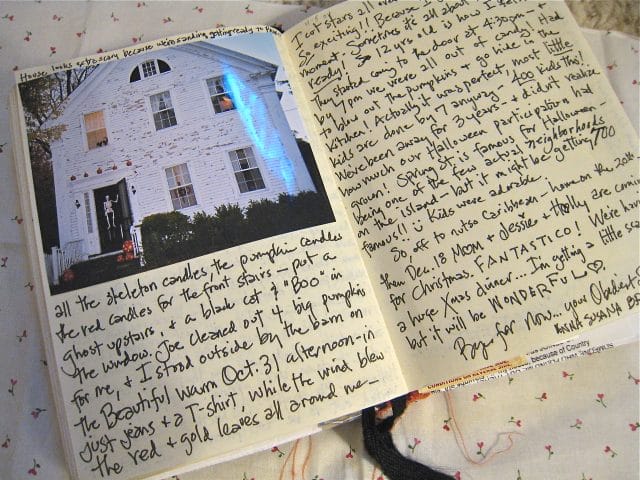 House looks extra scary because we're sanding + getting ready to
all the skeleton candles, the pumpkin candles
the red candles for the front stairs - put a
ghost upstairs, + a black cat + "Boo" in
the window. Joe cleaned out 4 big pumpkins
for me, + I stood outside by the barn on
the Beautiful warm Oct. 31 afternoon - in
just jeans + a T-shirt, while the wind blew
the red + gold leaves all around me -
I cut stars all
So exciting!! Because I
moment. Sometimes it's all about
ready! So 12 yrs old is how I feel
They started coming to the door at 4:30pm +
by 7pm we were all out of candy - Had
to blow out the pumpkins + go hide in the
kitchen! Actually it was perfect, most little
kids are done by 7 anyway - 400 kids this?
We've been away for 3 years + didn't realize
how much our Halloween participation had
grown! Spring St. is famous for Halloween -
being one of the few actual neighborhoods
on the island - but it might be getting TOO
famous!! Kids were adorable.
So, off to nutso Caribbean - home on the 20th
then Dec. 18 Mom + Jessie + Holly are coming
for Christmas. FANTASTICO! We're having
a huge Xmas dinner... I'm getting a little scared
but it will be WONDERFUL ♡
Bye for now... your Obedient
SUSANA
because of Country